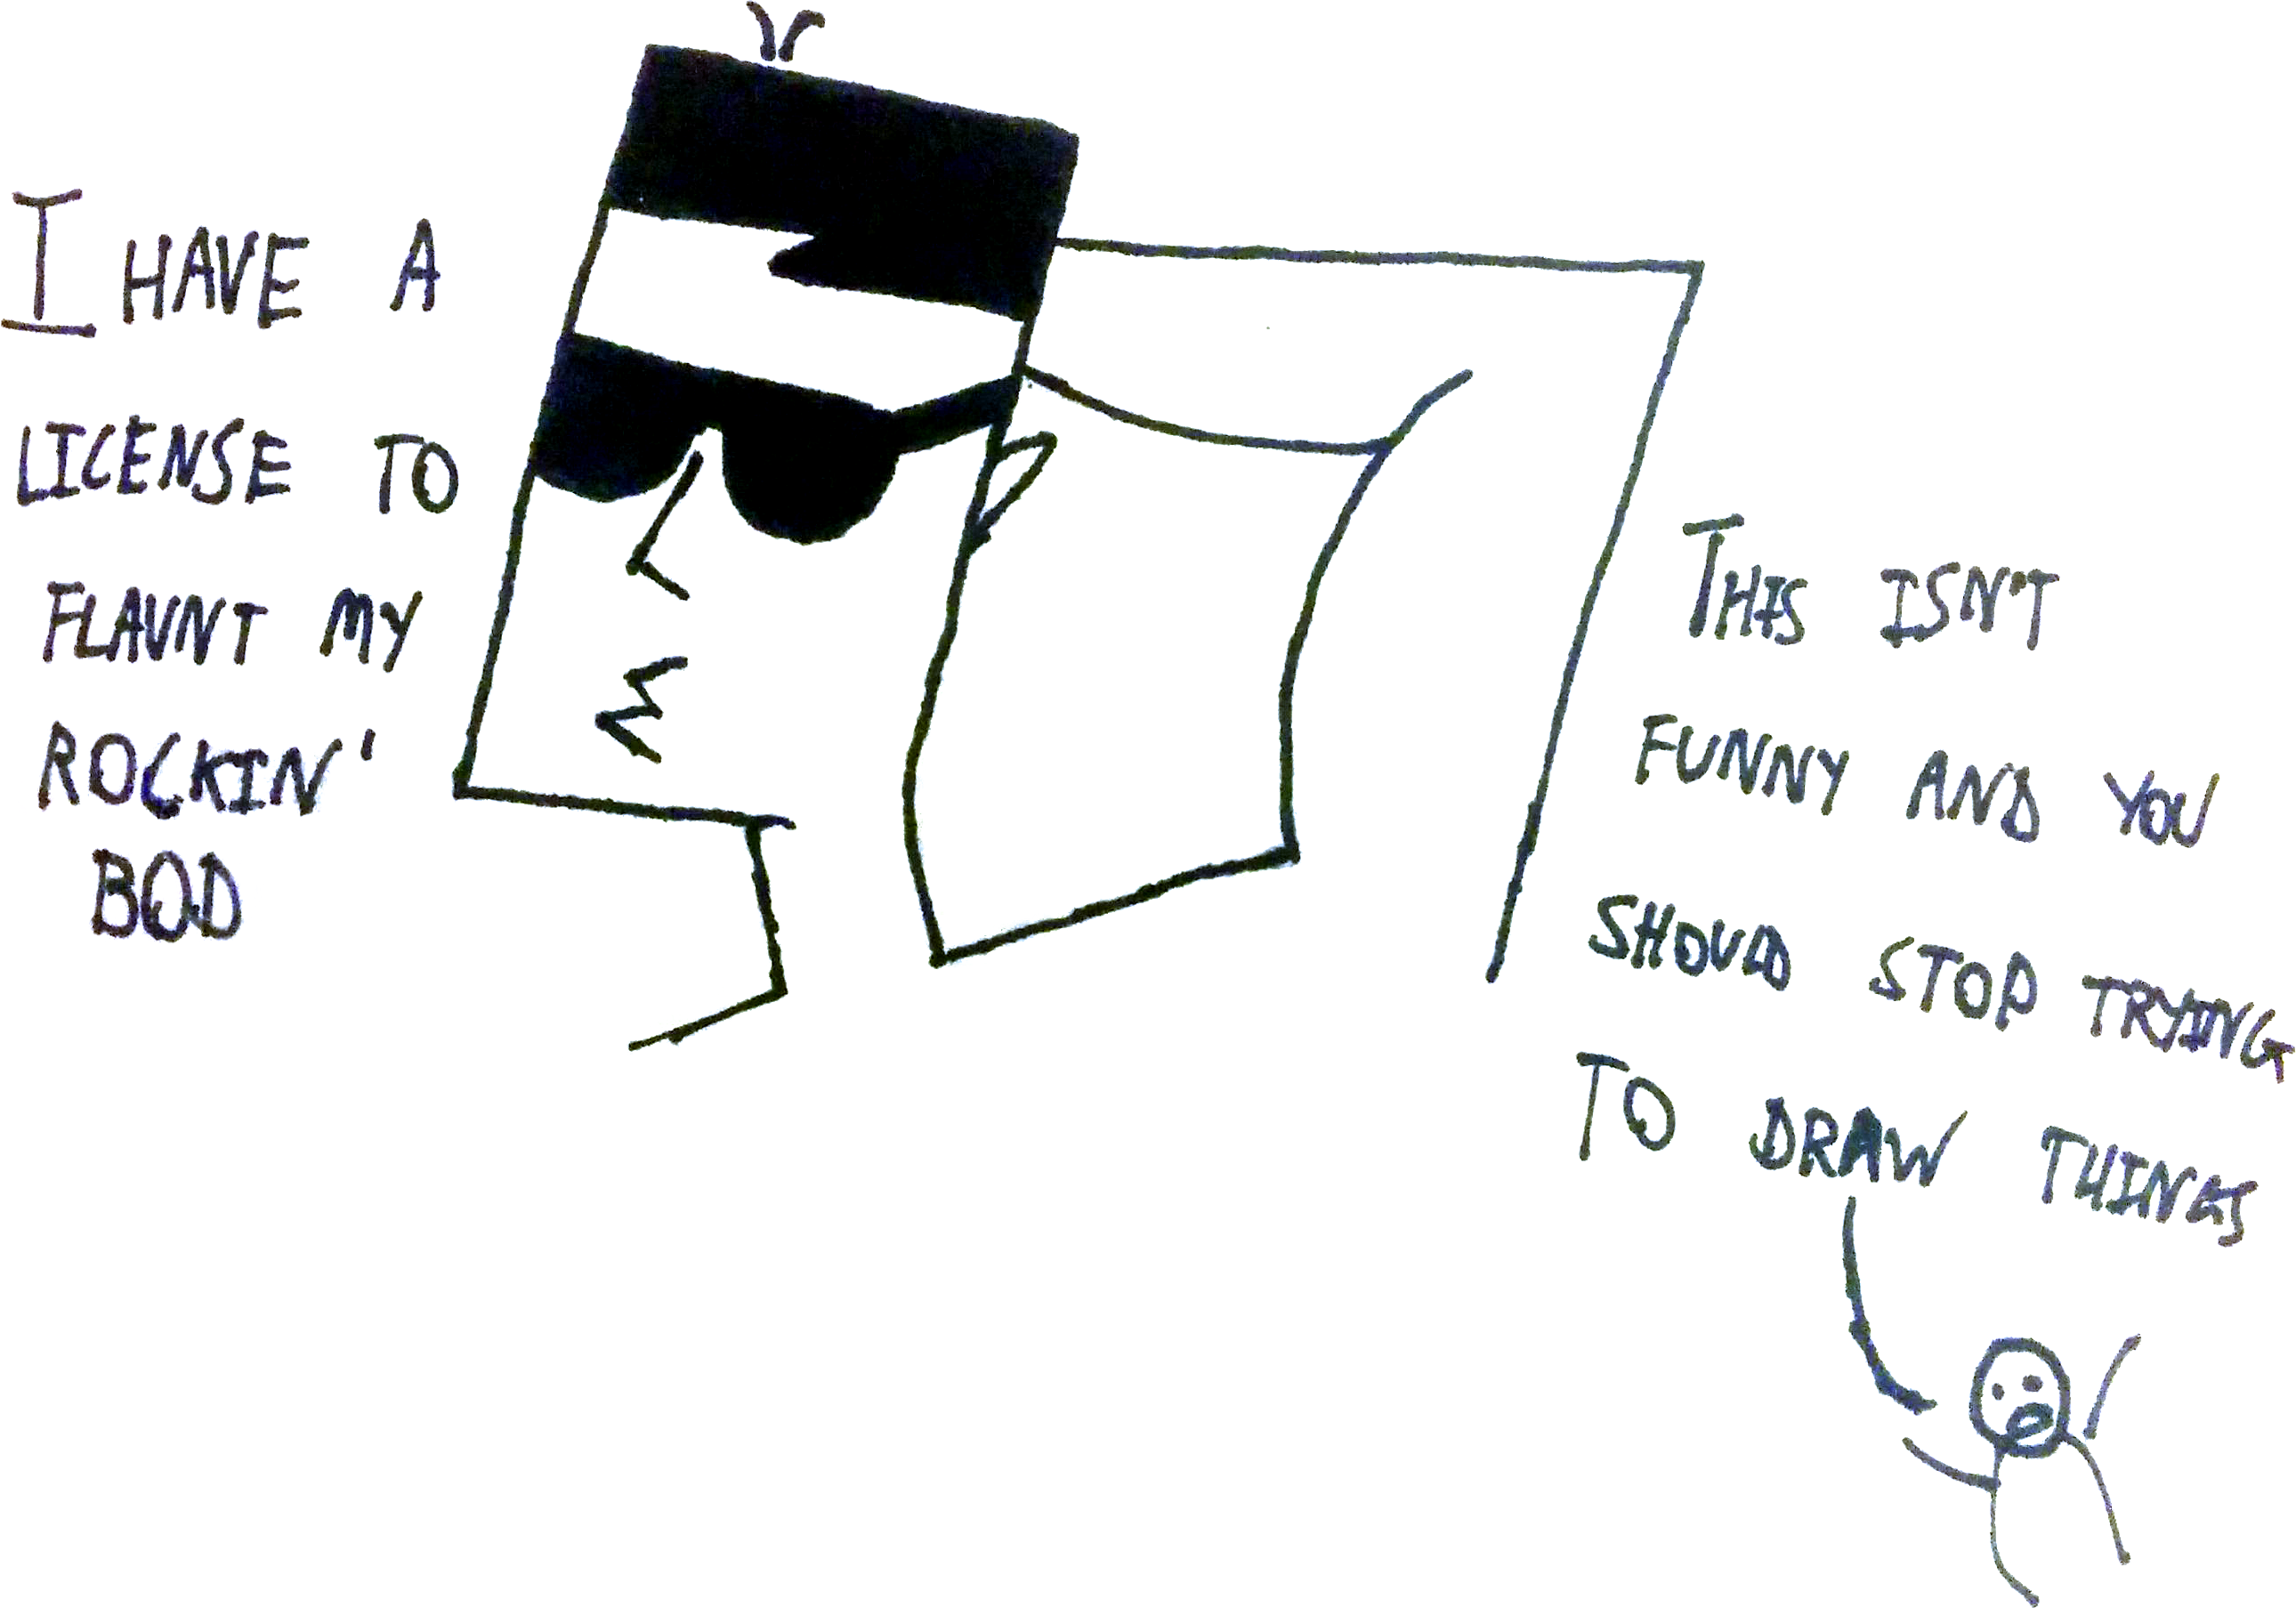 I HAVE A
LICENSE TO
FLAUNT MY
ROCKIN'
BOD
THIS ISN'T
FUNNY AND YOU
SHOULD STOP TRYING
TO DRAW THINGS